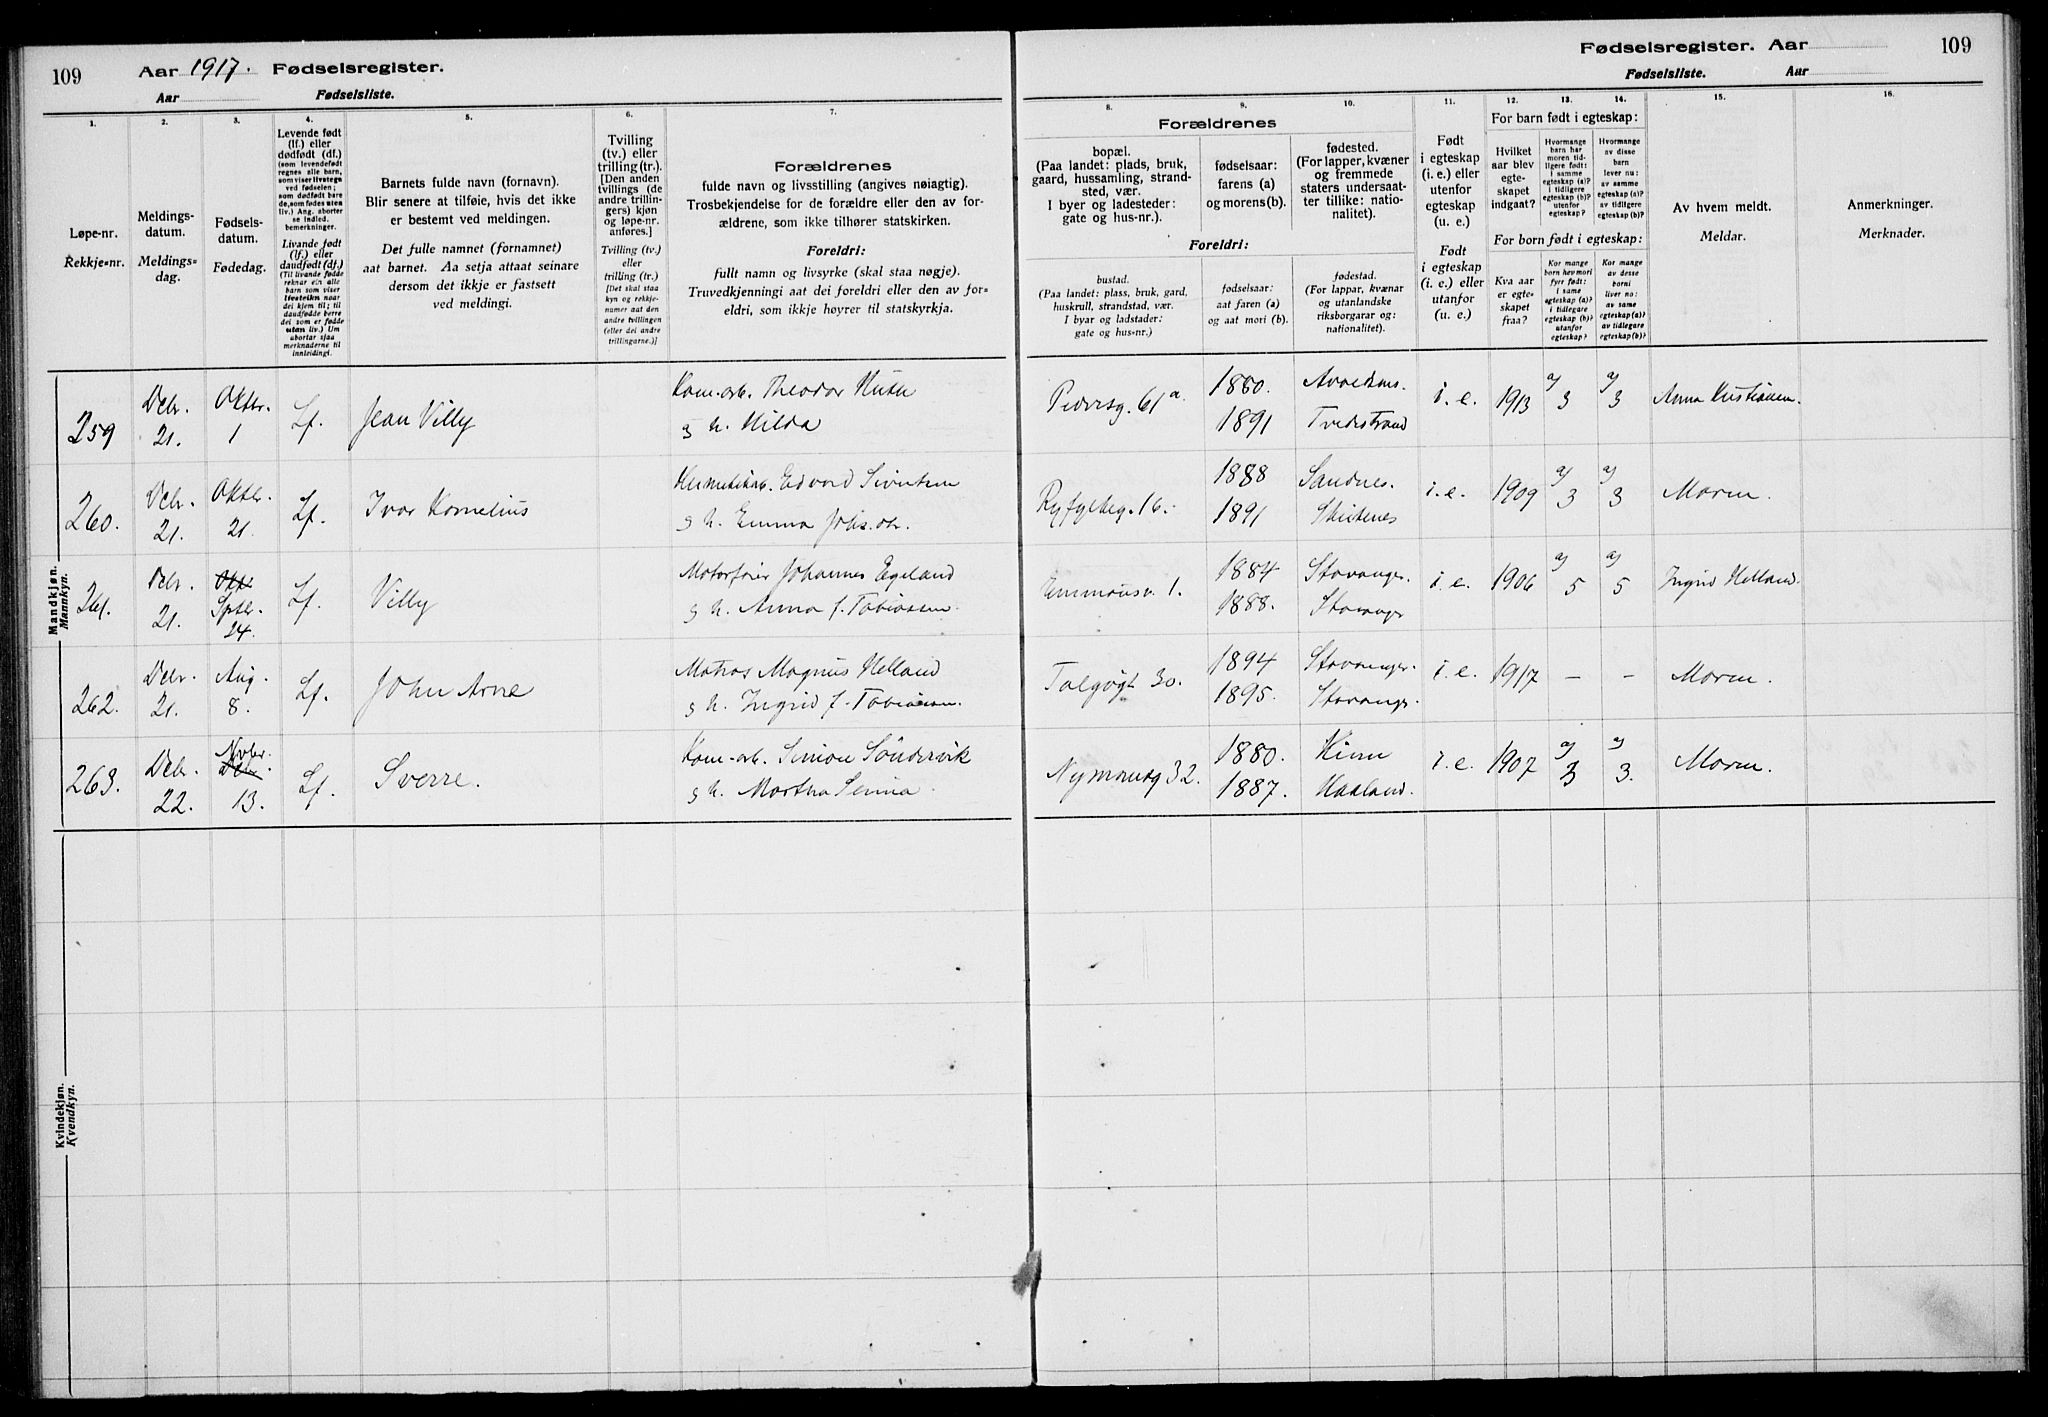 109
Aar 1917. Fødselsregister.
Aar Fødselsliste.
Fødselsregister. Aar 109
Fødselsliste. Aar
1.
Løpe-nr.
Rekkje=nr.
2.
Meldings-
datum.
Meldings=
dag.
3.
Fødsels-
datum.
Fødedag.
4.
Levende født
(lf.) eller
dødfødt (df.)
(som levendefødt
regnes alle barn,
som viser livstegn
ved fødselen;
som dødfødt bare
de, som fødes uten
liv.) Ang. aborter
se indled.
bemerkninger.
Livande født
(lf.) eller
daudfødt (df.)
(Til livande fødde
reknar ein alle
barn som viser
livsteikn naar
dei kjem til; til
daudfødde berre
dei som er fødde
utan liv.) Um
abortar sjaa
merknaderne til
innleidingi.
5.
Barnets fulde navn (fornavn).
Blir senere at tilføie, hvis det ikke
er bestemt ved meldingen.
Det fulle namnet (fornamnet)
aat barnet. Aa setja attaat seinare
dersom det ikkje er fastsett
ved meldingi.
6.
Tvilling
(tv.) eller
trilling (tr.).
[Den anden
tvillings (de
andre trillin-
gers) kjøn
og løpe-nr.
anføres.]
Tvilling (tv.)
eller
trilling (tr.)
[Det skal staa
kyn og rekkje-
numer aat den
andre tvillingen
(eller dei andre
trillingarne.)]
7.
Forældrenes
fulde navn og livsstilling (angives nøiagtig).
Trosbekjendelse for de forældre eller den av for-
ældrene, som ikke tilhører statskirken.
Foreldri:
fullt namn og livsyrke (skal staa nøgje).
Truvedkjenningi aat dei foreldri eller den av for=
eldri, som ikkje høyrer til statskyrkja.
Forældrenes
8.
bopæl.
(Paa landet: plads, bruk,
gaard, hussamling, strand-
sted, vær.
I byer og ladesteder:
gate og hus-nr.).
9.
fødselsaar:
farens (a)
og morens (b).
10.
fødested.
(For lapper, kvæner
og fremmede
staters undersaat-
ter tillike: natio-
nalitet).
Foreldri:
bustad.
(Paa landet: plass, bruk, gard,
huskrull, strandstad, vær.
I byar og ladstader:
gate og hus=nr.)
fødselsaar:
aat faren (a)
og aat mori (b).
fødestad.
(For lappar, kvænar
og utanlandske
riksborgarar og:
nationalitet).
11.
Født
i egteskap
(i. e.) eller
utenfor
egteskap
(u. e.)
Født
i egteskap
(i. e.) eller
utanfor
(u. e.)
12. 13. 14.
For barn født i egteskap:
Hvilket
aar blev
egte-
skapet
indgaat?
Hvormange
barn har
moren tid-
ligere født:
i samme
egteskap (a)?
i tidligere
egteskap (b)?
utenfor
egteskap?
Hvormange
av disse
barn
lever nu:
av samme
egteskap (a)?
av tidligere
egteskap (b)?
For born født i egteskap:
Kva aar
er egte=
skapet
fraa?
Kor mange
born hev mori
fyre født:
i same
egteskap (a)?
i tidlegare
egteskap (b)?
utanfor
egteskap?
Kor mange
av desse
borni
liver no:
av same
egteskap (a)?
av tidlegare
egteskap (b)?
15.
Av hvem meldt.
Meldar.
16.
Anmerkninger.
Merknader.
Mandkjøn.
Mannkyn.
259 Debr. 21. Oktbr. 1 Lf. Jean Villy Kom-arb. Theodor Huth
g h. Hilda
Pedersg. 61 a. 1880. 1891 Tvedestrand i. e. 1913 a/ 3 a/ 3 Anna Kristiansen.
260. Debr. 21. Oktbr. 21. Lf. Ivar Kornelius Edvard Sivertsen
g h. Emma
Ryfylkeg. 16. 1888 Sandnes. 1891 i. e. 1909 a/ 3 a/ 3 Moren.
261. Debr. 21. Okt. Sptbr. 24. Lf. Villy Motorfører Johannes Egeland
g h. Anna f. Tobiassen.
Emmausv. 1. 1884 Stavanger. 1888. Stavanger i. e. 1906 a/ 5 a/ 5 Ingrid Helland.
262. Debr. 21. Aug. 8. Lf. John Arne Matros Magnus Helland
g h. Ingrid f. Tobiassen.
Talgøgt 30. 1894 Stavanger. 1895. Stavanger. i. e. 1917 – – Moren.
263. Debr. 22. Novbr. Debr. 13. Lf. Sverre. Kom-arb. Simon Söndervik
g h. Martha Serina
Nymansg 32. 1880. Kinn 1887. Haaland. i. e. 1907 a/ 3 a/ 3. Moren.
Kvindekjøn.
Kvendkyn.